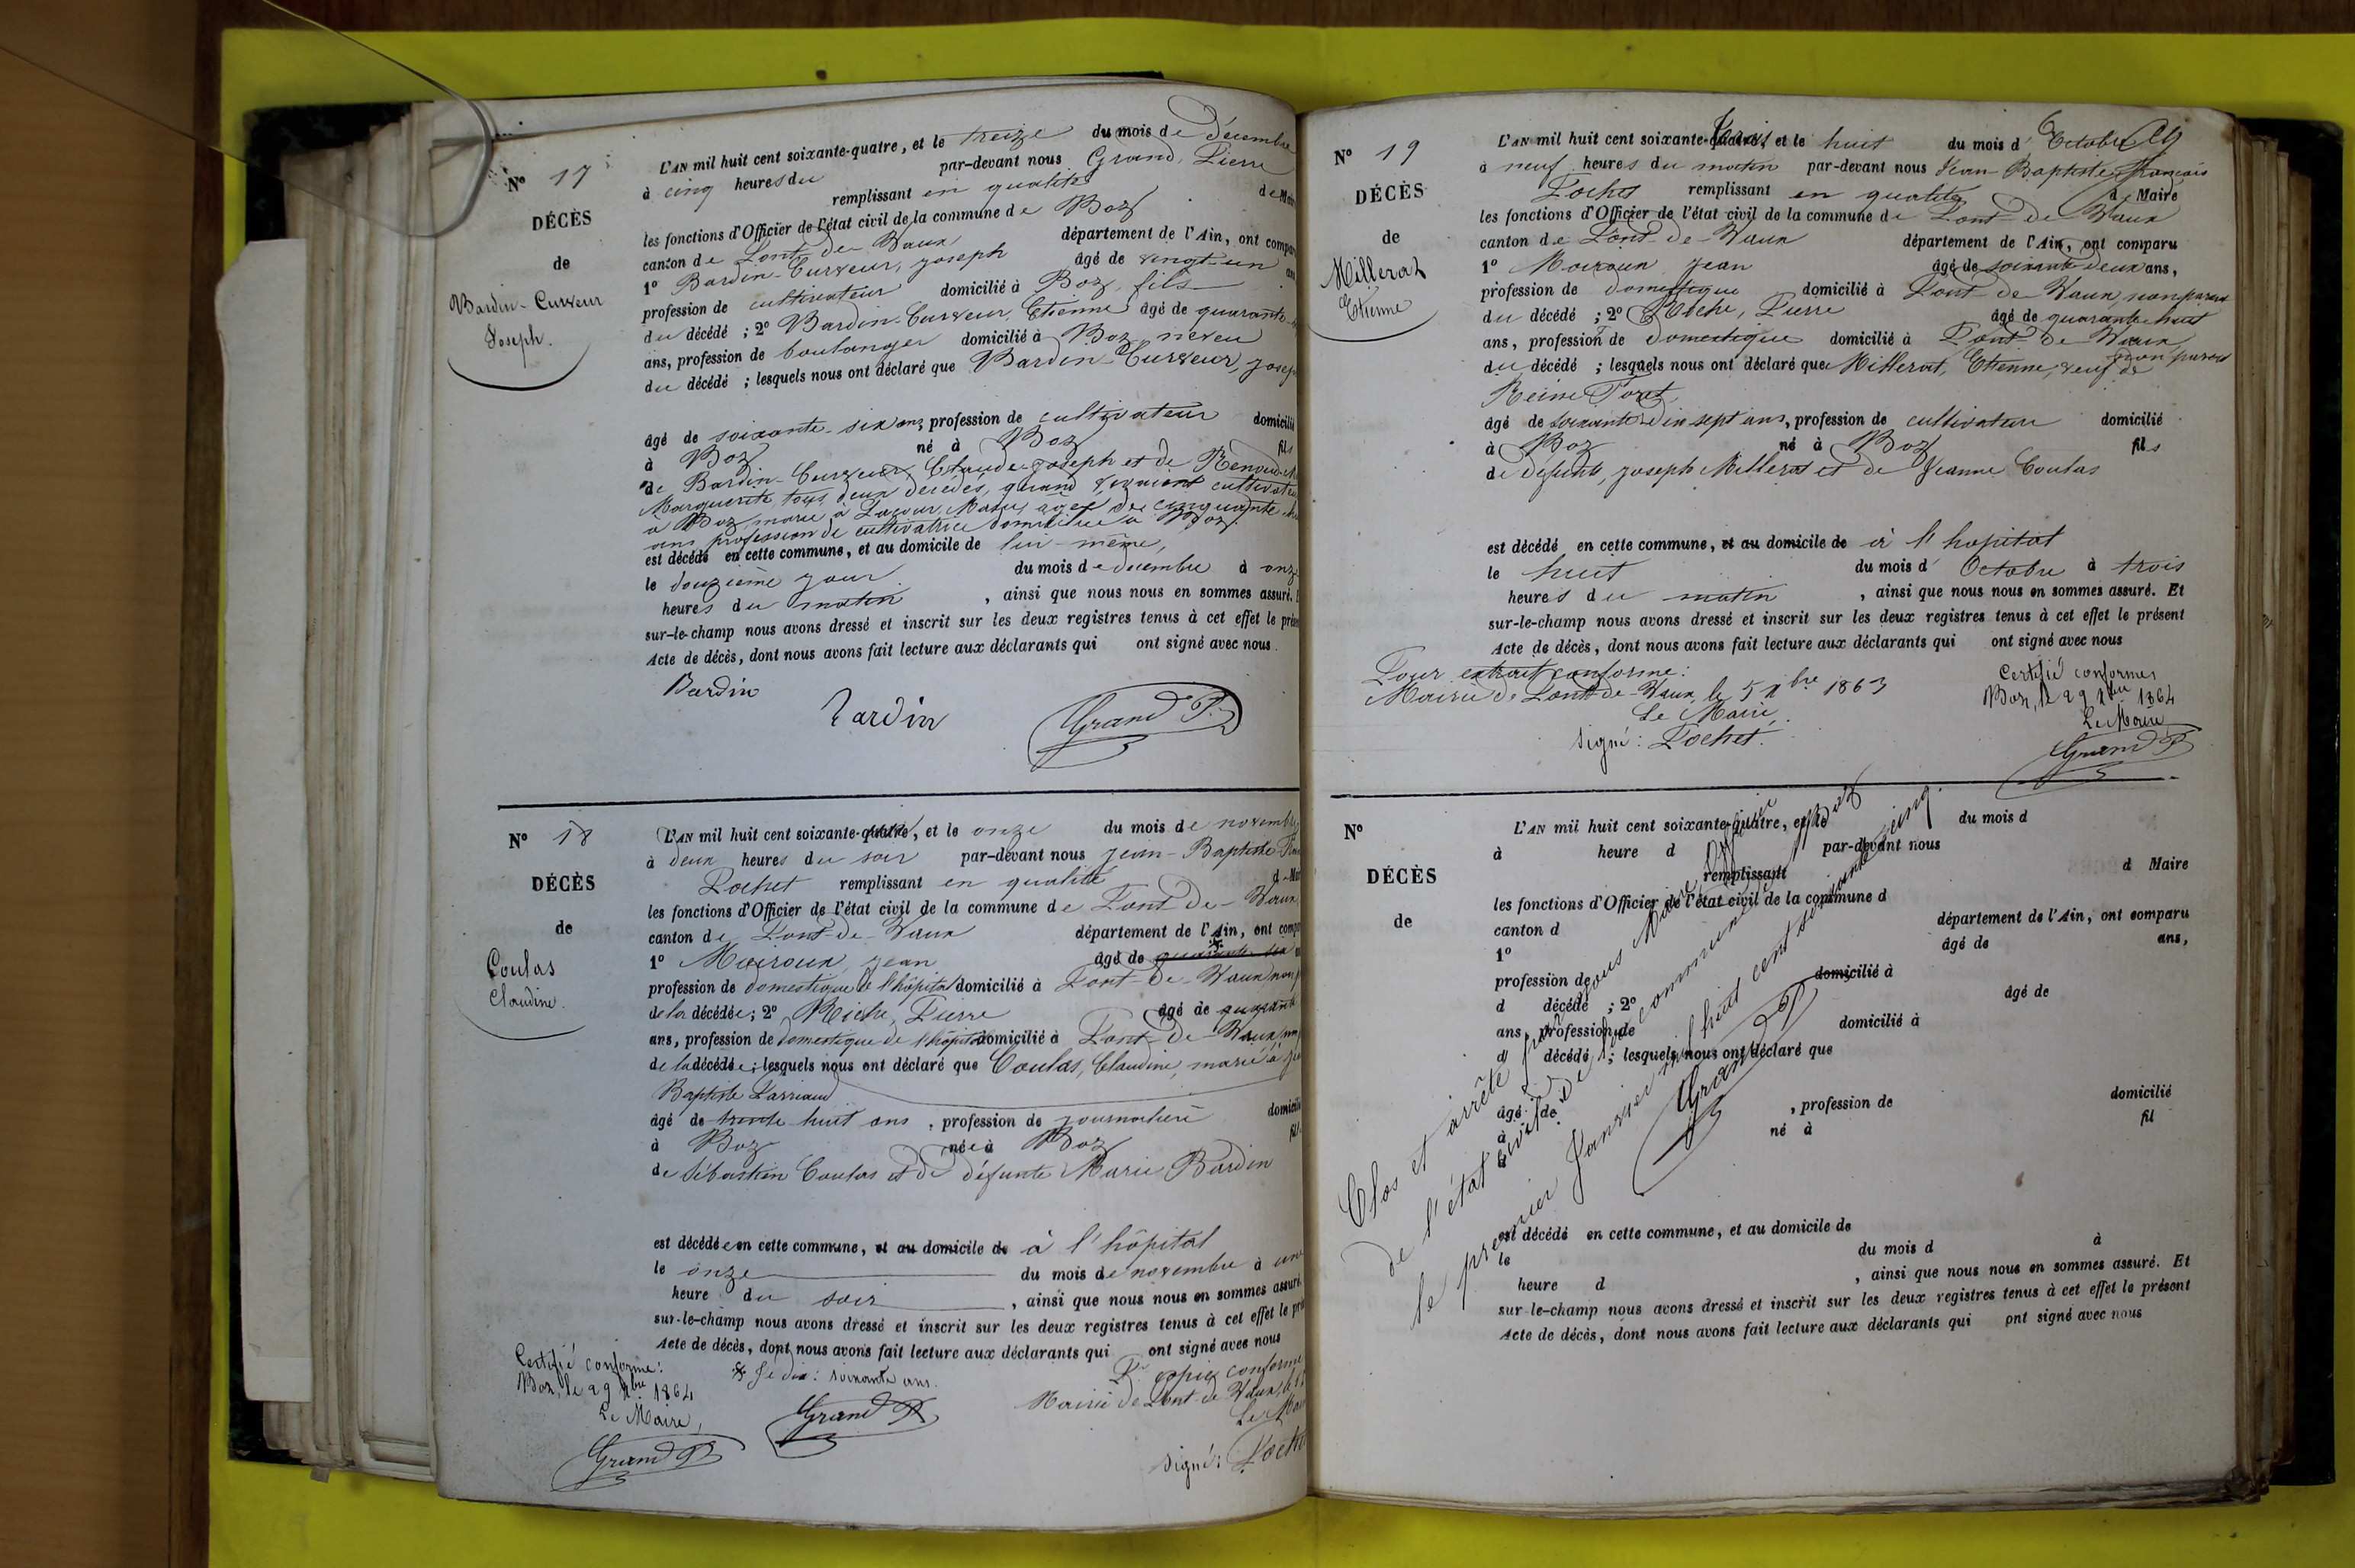 N° 17
DÉCÈS
de
Bardin-Curveur
Joseph.
L'AN mil huit cent soixante-quatre, et le treize du mois de décembre
à cinq heures du par-devant nous Grand, Pierre
remplissant en qualité de Maire
les fonctions d'Officier de l'état civil de la commune de Boz
canton de Pont-de-Vaux département de l'Ain, ont comparu
1° Bardin-Curveur, Joseph âgé de vingt-un ans
profession de cultivateur domicilié à Boz, fils
du décédé ; 2° Bardin-Curveur, Etienne âgé de quarante
ans, profession de boulanger domicilié à Boz neveu
du décédé ; lesquels nous ont déclaré que Bardin-Curveur, Joseph
âgé de soixante-six ans, profession de cultivateur domicilié
à Boz né à Boz fils
de Bardin-Curveur, Claude Joseph et de
Marguerite tous deux décédés, quand vivaient cultivateurs
à Boz, marié à Marie, âgée de cinquante
ans profession de cultivatrice domiciliée à Boz
est décédé en cette commune, et au domicile de lui-même,
le douzième jour du mois de décembre à onze
heures du matin , ainsi que nous nous en sommes assuré. Et
sur-le-champ nous avons dressé et inscrit sur les deux registres tenus à cet effet le présent
Acte de décès, dont nous avons fait lecture aux déclarants qui ont signé avec nous.
Bardin
Bardin
Grand P.
N° 18
DÉCÈS
de
Coulas
Claudine.
L'AN mil huit cent soixante-quatre, et le onze du mois de novembre
à deux heures du soir par-devant nous Jean-Baptiste
Pochet remplissant en qualité de Maire
les fonctions d'Officier de l'état civil de la commune de Pont-de-Vaux
canton de Pont-de-Vaux département de l'Ain, ont comparu
1° Moiroux, Jean âgé de
profession de domestique de l'hôpital domicilié à Pont-de-Vaux non
de la décédée ; 2° Riche, Pierre âgé de quarante
ans, profession de domestique de l'hôpital domicilié à Pont-de-Vaux
de la décédée ; lesquels nous ont déclaré que Coulas, Claudine, marié à
Baptiste
âgé de trente huit ans , profession de journalière domicilié
à Boz née à Boz fille
de Sébastien Coulas et de défunte Marie Bardin
est décédée en cette commune, et au domicile de à l'hôpital
le onze du mois de novembre à une
heure du soir , ainsi que nous nous en sommes assuré.
sur-le-champ nous avons dressé et inscrit sur les deux registres tenus à cet effet le présent
Acte de décès, dont nous avons fait lecture aux déclarants qui ont signé avec nous
Certifié conforme :
Boz, le 29 Xbre 1864
Le Maire,
Grand P.
Je dis : soixante ans.
Grand P
Pr copie conforme
Mairie de Pont-de-Vaux, le
Le Maire
Signé : Pochet
N° 19
DÉCÈS
de
Millerat
Etienne
L'AN mil huit cent soixante-trois et le huit du mois d'Octobre
à neuf heures du matin par-devant nous Jean-Baptiste, François
Pochet remplissant en qualité d Maire
les fonctions d'Officier de l'état civil de la commune de Pont-de-Vaux
canton de Pont-de-Vaux département de l'Ain, ont comparu
1° Moiroux Jean âgé de soixante deux ans,
profession de domestique domicilié à Pont-de-Vaux, non parent
du décédé ; 2° Riche, Pierre âgé de quarante-huit
ans, profession de domestique domicilié à Pont-de-Vaux
non parent
du décédé ; lesquels nous ont déclaré que Millerat, Etienne, veuf de
Reine
âgé de soixante-dix sept ans, profession de cultivateur domicilié
à Boz né à Boz fils
de défunts, Joseph Millerat et de Jeanne Coulas
est décédé en cette commune, et au domicile de à l'hopital
le huit du mois d'Octobre à trois
heures du matin , ainsi que nous nous en sommes assuré. Et
sur-le-champ nous avons dressé et inscrit sur les deux registres tenus à cet effet le présent
Acte de décès, dont nous avons fait lecture aux déclarants qui ont signé avec nous
Pour extrait conforme :
Mairie de Pont-de-Vaux, le 5 Xbre 1863
Le Maire,
Signé : Pochet.
Certifié conforme,
Boz, le 29 Xbre 1864
Le Maire
Grand P
N°
DÉCÈS
de
L'AN mil huit cent soixante-quatre, et le du mois d
à heure d par-devant nous
remplissant d Maire
les fonctions d'Officier de l'état civil de la commune d
canton d département de l'Ain, ont comparu
1° âgé de ans,
profession de domicilié à
d décédé ; 2° âgé de
ans, profession de domicilié à
d décédé ; lesquels nous ont déclaré que
âgé de , profession de domicilié
à né à fil
d
est décédé en cette commune, et au domicile de
le du mois d à
heure d , ainsi que nous nous en sommes assuré. Et
sur-le-champ nous avons dressé et inscrit sur les deux registres tenus à cet effet le présent
Acte de décès, dont nous avons fait lecture aux déclarants qui ont signé avec nous
Clos et arrêté par nous Maire Officier
de l'état civil de la commune de Boz
le premier Janvier mil huit cent soixante cinq.
Grand P